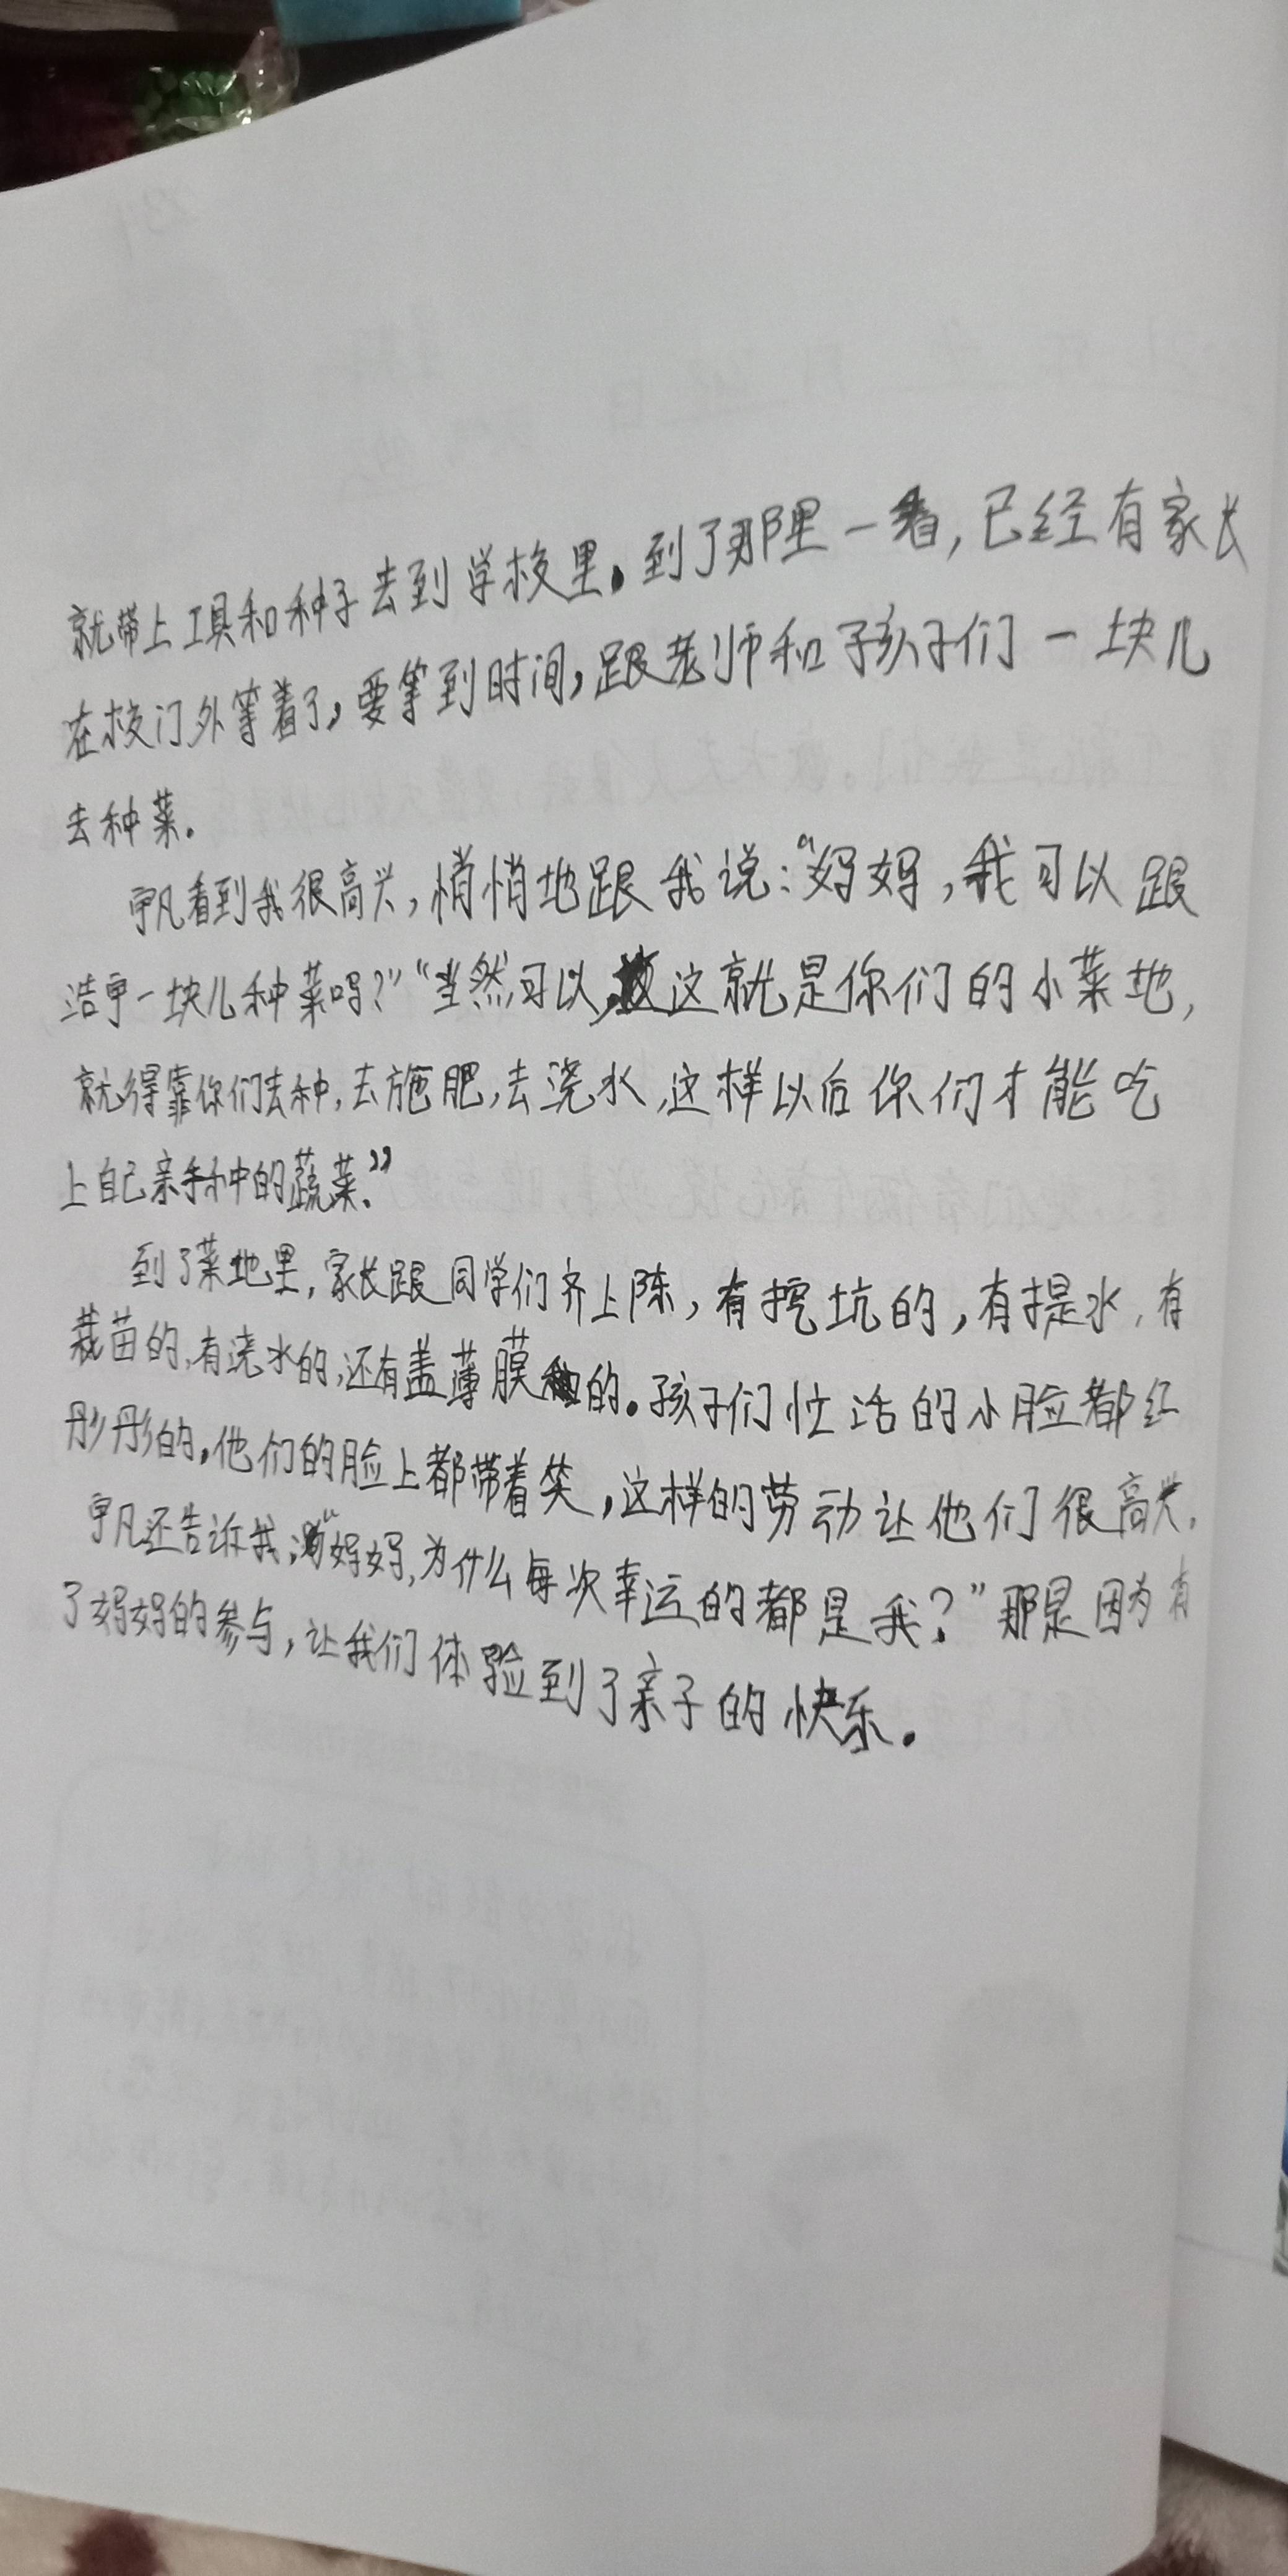 就带上工具和种子去到学校里。到了那里一看,已经有家长
在校门外等着了,要等到时间,跟老师和孩子们一块儿
去种菜.
宇凡看到我很高兴,悄悄地跟我说:“妈妈,我可以跟
浩宇一块儿种菜吗?”“当然可以,这就是你们的小菜地,
就得靠你们去种,去施肥,去浇水,这样以后你们才能吃
上自己亲手种的蔬菜.”
到了菜地里,家长跟同学们齐上陈,有挖坑的,有提水,有
栽苗的,有浇水的,还有盖薄膜的。孩子们忙活的小脸都红
彤彤的,他们的脸上都带着笑,这样的劳动让他们很高兴.
宇凡还告诉我,“妈妈,为什么每次幸运的都是我?”那是因为有
了妈妈的参与,让我们体验到了亲子的快乐.